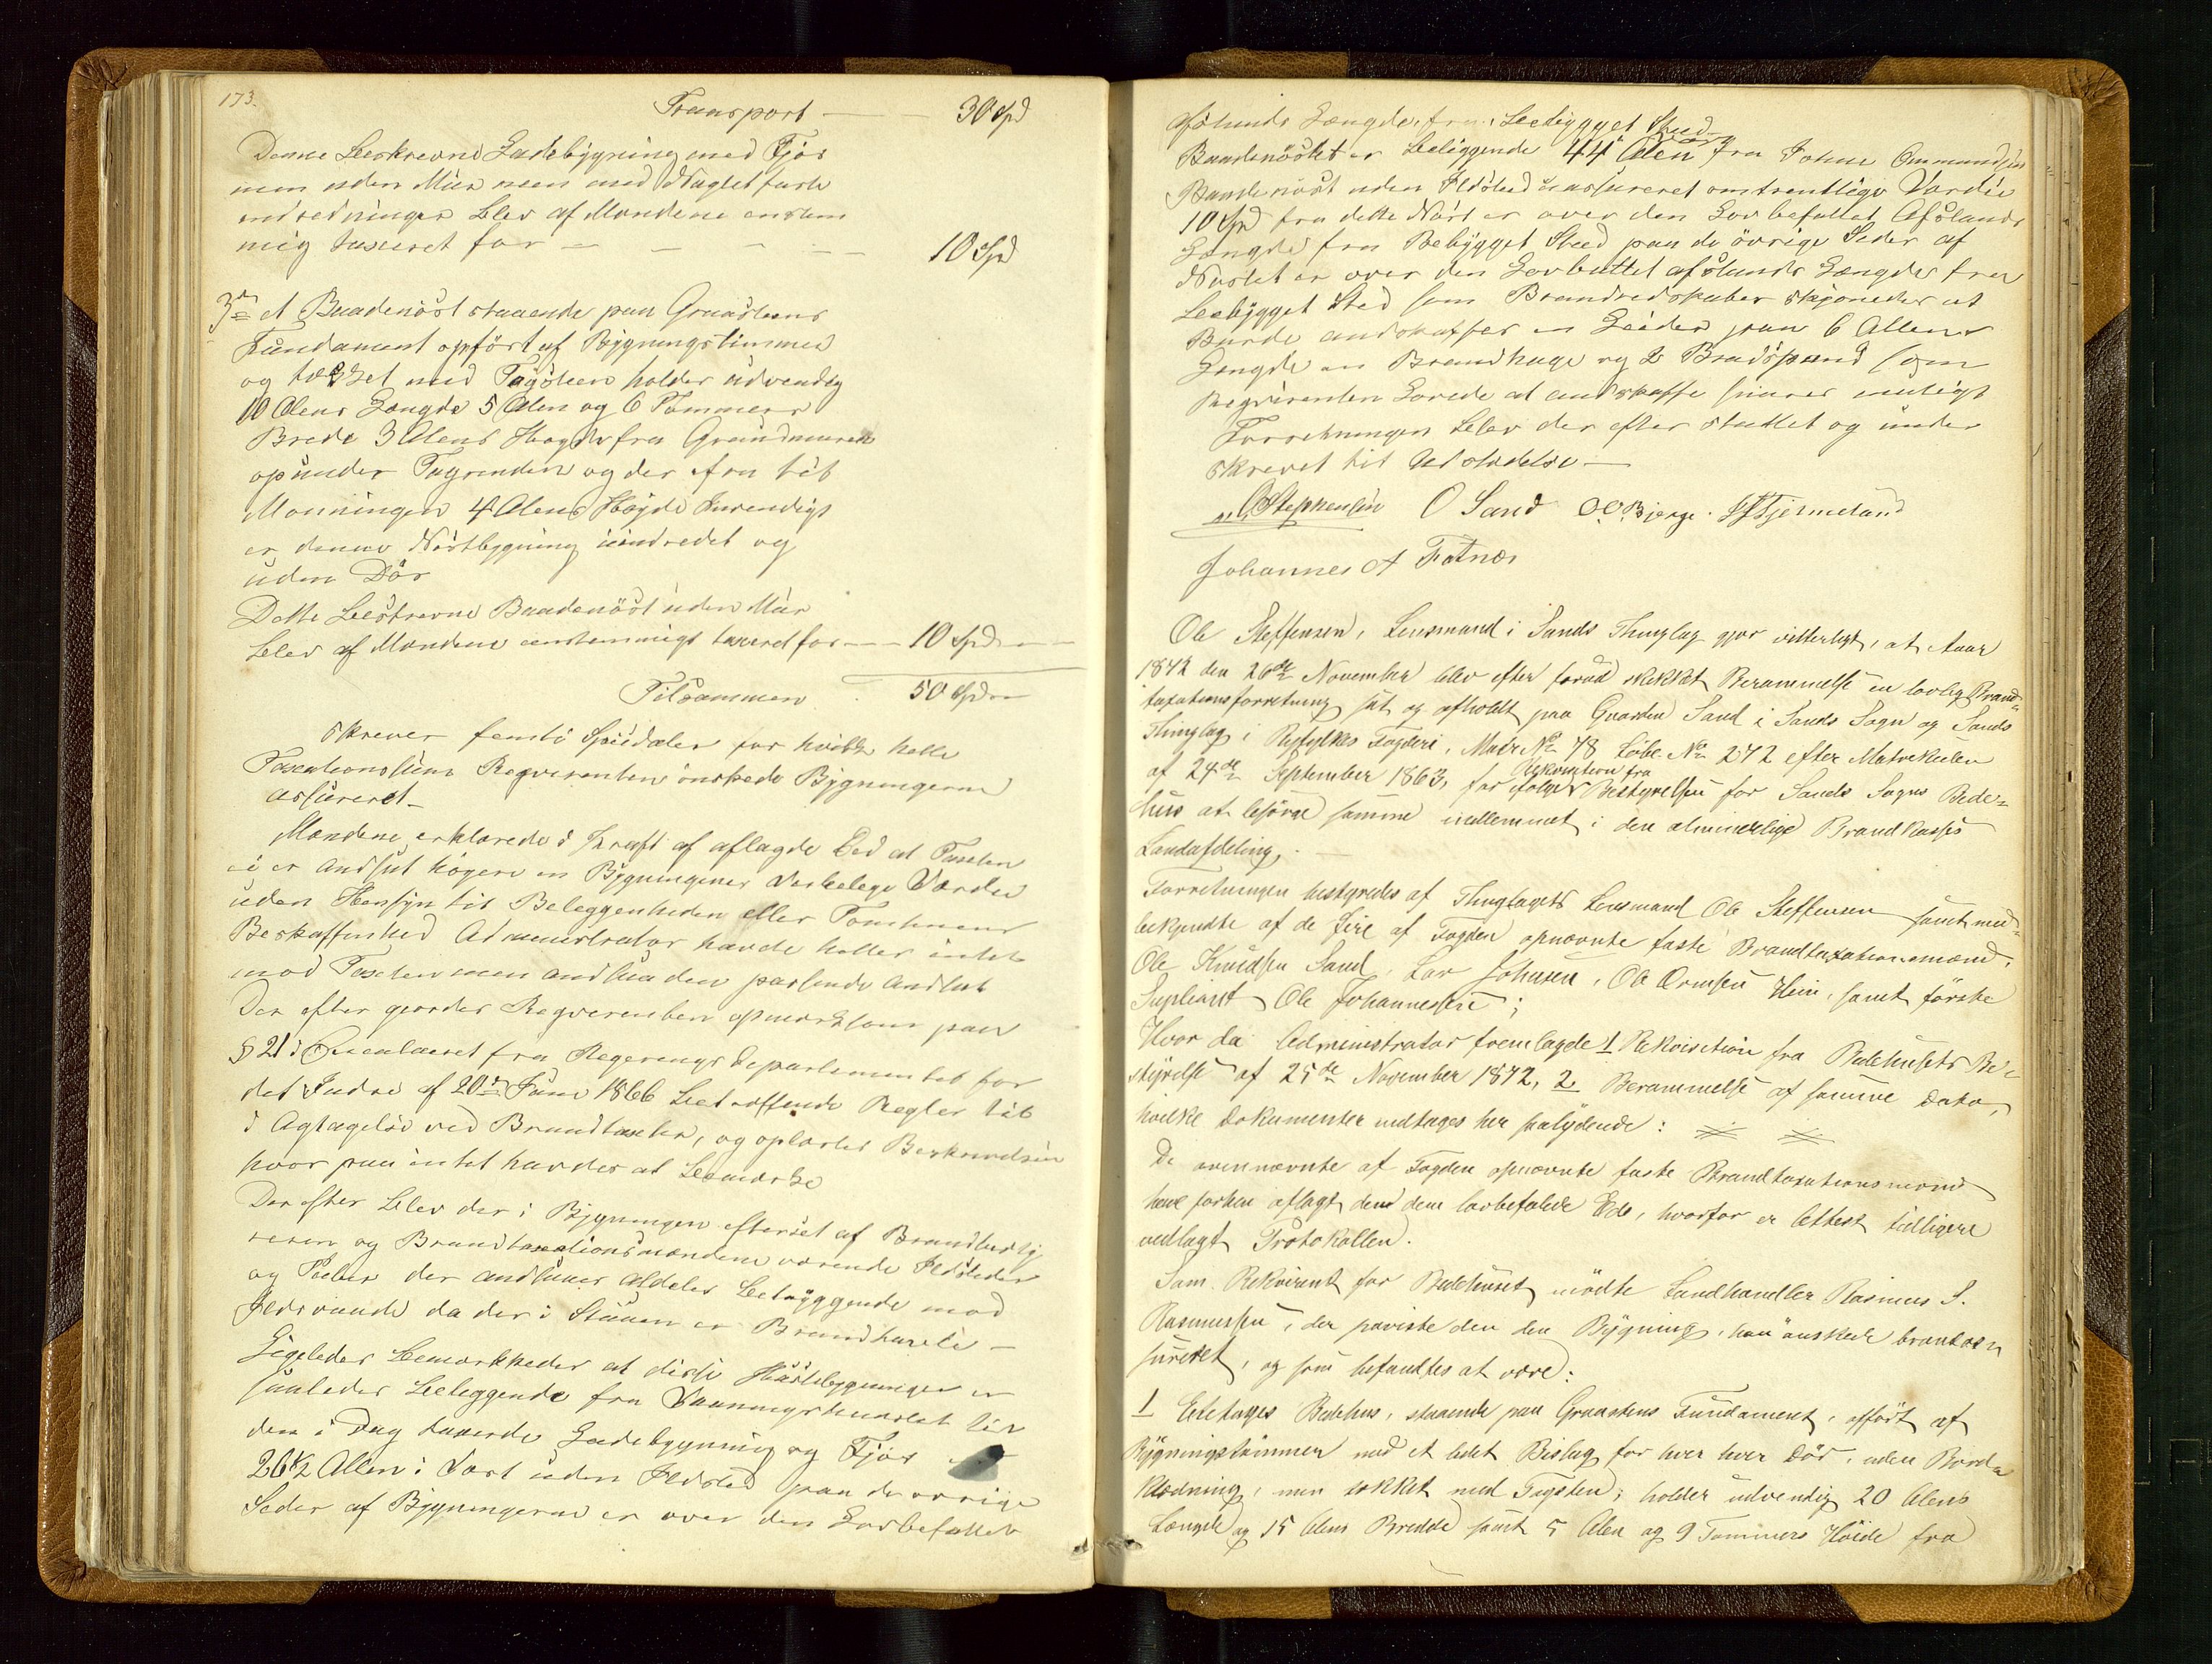 173.
Transport — 30 Spd
Denne beskrevne Ladebygning med Fjøs
men uden Mur men med Naglet faste
indredninger blev af Mændene enstem
mig taxeret for — — — 10 Spd
3de et Baadenöst staaende paa Graasteens
Fundament opfört af Bygningstimmer
og tækket med Tagsteen holder udvendig
10 Alens Længde 5 Alen og 6 Tommers
Brede 3 Alens Høgde fra Grundmuren
op under Tagrenden og der ifra til
Mønningen 4 Alens Høyde Invendigt
er denne Nöstbygning uindredet og
uden Dör
Dette beskrevne Baadenöst uden Mur
blev af Mændene eenstemmigt taxeret for — 10 Spd —
Tilsammen 50 Spd —
skrever femti Speidaler for hvilke helle
Taxationssum Reqvirenten önskede Bygningerne
assureret —
Mændene erklærede i Kraft af aflagde Eed at Taxten
ei er andsat høgere en Bygningernes verkelege Værdie
uden Hensyn til Beleggenheden eller Tomtenens
Beskaffenhed Administrator havde heller intet
mod Taxten men andsaa den passende andsat
Der efter giordes Reqvirenten opmærksom paa
§ 21 i Circulæret fra Regerings Departementet for
det Indre af 20de Juni 1866 betreffende Regler til
i Agtagelse ved Brandtaxter, og oplæstes Beskrivelsen
hvor paa intet havdes at bemærke
Der efter blev der i Bygningen efterset af Brandbesty
reren og Brandtaxationsmændene værende Ildsteder
og Peeber der andsaaes aldeles betryggende mod
Ildsvaade da der i Stuen er
Ligeledes bemærkkedes at disse Huusebygninger er
saaledes beleggende fra Vaaningshuuset til
den i Dag taxerede Ladebygning og Fjös
26½ Allen i Væst uden Ildsted paa de øvrige
Seder af Bygningerne er over den Lovbefallet
afstands Længde fra Bebygget Sted
Baadenöstet er beliggende 44 Alen fra Johne Ommundsen
Baadenöst uden Ildsted uassureret omtrentlige Værdie
10 Spd fra dette Nöst er over den Lov befallet Afstands
Længde fra Bebygget Sted paa de övrige Seder af
Nöstet er over den Lovbefallet afstands Længde fra
bebygget Sted som Brandredskaber skjønedes at
Burde andskaffes en Leider paa 6 Allens
Længde en Brandhage og 2 Brandspand som
Reqvirenten Lovede at andskaffe snarest muligt
Forretningen blev der efter sluttet og under
skrevet til Udstedelse —
O Stephensen O Sand O O Bjerge. Tjermeland
Johannes A Fatnes
Ole Steffensen, Lensmand i Sands Thinglag gjør vitterligt, at Aaar
1872 den 26de November blev efter forud skikket Berammelse en lovlig Brand-
taxationsforretning sat og afholdt paa Gaarden Sand i Sands Sogn og Sands
Thinglag i Ryfylkes Fogderi, Matr No 78 Löbe No 272 efter Matrekulen
af 24de September 1863, ifölge Rekvisition fra Bestyrelsen for Sands Sogns Bede-
huus at besörge samme indlemmet i den almindelige Brandkasses
Landafdeling. —
Forretningen bestyredes af Thinglagets Lensmand Ole Steffensen samt med-
bekjendte af de fire af Fogden opnævnte faste Brandtaxationsmænd,
Ole Knudsen Sand, Lar Johnsen, Ole Ormsen Hein, samt förste
Supliant Ole Johannessen;
Hvor da Administrator fremlagde 1 Rekvisition fra Bedehusets Be-
styrelse af 25de November 1872, 2 Berammelse af samme Dato,
hvilke Dokumenter indtages her saalydende:
De ovennævnte af Fogden opnævnte faste Brandtaxationsmænd
have forhen aflagt den dem lovbefalede Eed, hvorfor er Attest tidligere
vedlagt Protokollen.
Som Rekvirent for Bedehuset mödte Landhandler Rasmus S.
Rasmussen, der paaviste den den Bygning, han önskede brandas-
sureret, og som befandtes at være:
1 Eetetages Bedehus, staaende paa Graastens Fundament, opfört af
Bygningstömmer med et lidet Bislag for hver hver Dör, uden Bord-
klædning, men tækket med Tagsten; holder udvendig 20 Alens
Længde og 15 Alens Bredde samt 5 Alen og 9 Tommers Höide fra